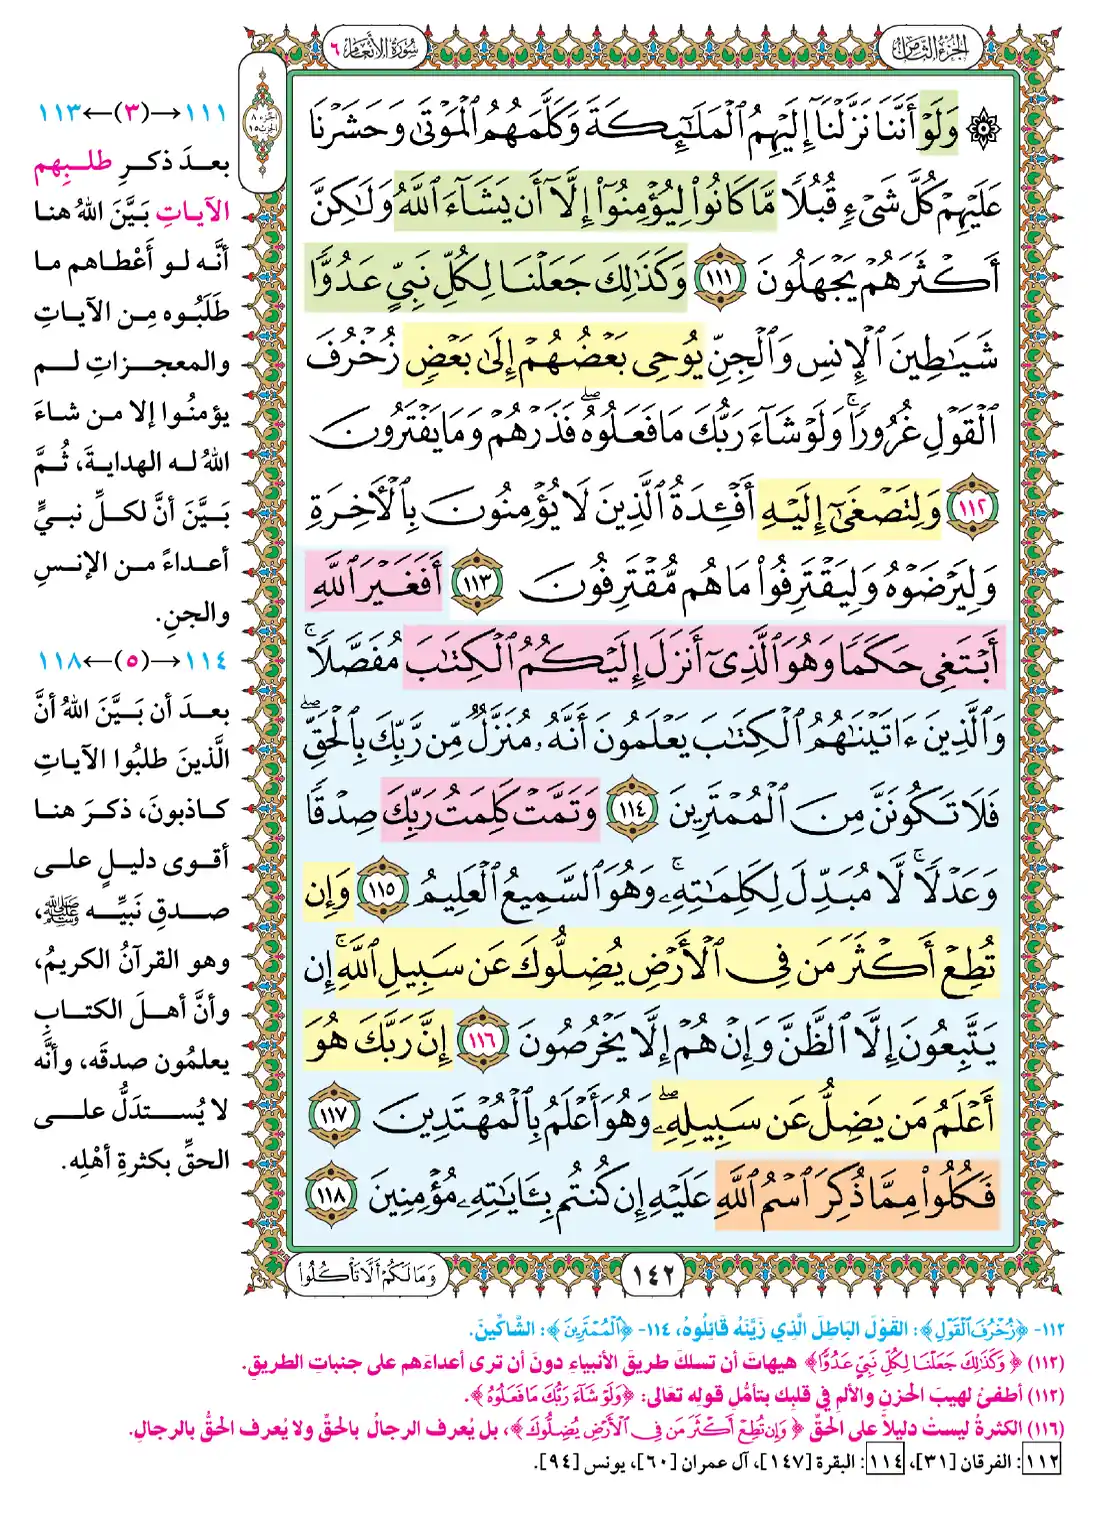 الجزء الثامن
سورة الأنعام ٦
۞ وَلَوْ أَنَّنَا نَزَّلْنَآ إِلَيْهِمُ ٱلْمَلَٰٓئِكَةَ وَكَلَّمَهُمُ ٱلْمَوْتَىٰ وَحَشَرْنَا
عَلَيْهِمْ كُلَّ شَىْءٍ قُبُلًا مَّا كَانُوا۟ لِيُؤْمِنُوٓا۟ إِلَّآ أَن يَشَآءَ ٱللَّهُ وَلَٰكِنَّ
أَكْثَرَهُمْ يَجْهَلُونَ ١١١ وَكَذَٰلِكَ جَعَلْنَا لِكُلِّ نَبِىٍّ عَدُوًّا
شَيَٰطِينَ ٱلْإِنسِ وَٱلْجِنِّ يُوحِى بَعْضُهُمْ إِلَىٰ بَعْضٍ زُخْرُفَ
ٱلْقَوْلِ غُرُورًا ۚ وَلَوْ شَآءَ رَبُّكَ مَا فَعَلُوهُ ۖ فَذَرْهُمْ وَمَا يَفْتَرُونَ
١١٢ وَلِتَصْغَىٰٓ إِلَيْهِ أَفْـِٔدَةُ ٱلَّذِينَ لَا يُؤْمِنُونَ بِٱلْـَٔاخِرَةِ
وَلِيَرْضَوْهُ وَلِيَقْتَرِفُوا۟ مَا هُم مُّقْتَرِفُونَ ١١٣ أَفَغَيْرَ ٱللَّهِ
أَبْتَغِى حَكَمًا وَهُوَ ٱلَّذِىٓ أَنزَلَ إِلَيْكُمُ ٱلْكِتَٰبَ مُفَصَّلًا ۚ
وَٱلَّذِينَ ءَاتَيْنَٰهُمُ ٱلْكِتَٰبَ يَعْلَمُونَ أَنَّهُۥ مُنَزَّلٌ مِّن رَّبِّكَ بِٱلْحَقِّ ۖ
فَلَا تَكُونَنَّ مِنَ ٱلْمُمْتَرِينَ ١١٤ وَتَمَّتْ كَلِمَتُ رَبِّكَ صِدْقًا
وَعَدْلًا ۚ لَّا مُبَدِّلَ لِكَلِمَٰتِهِۦ ۚ وَهُوَ ٱلسَّمِيعُ ٱلْعَلِيمُ ١١٥ وَإِن
تُطِعْ أَكْثَرَ مَن فِى ٱلْأَرْضِ يُضِلُّوكَ عَن سَبِيلِ ٱللَّهِ ۚ إِن
يَتَّبِعُونَ إِلَّا ٱلظَّنَّ وَإِنْ هُمْ إِلَّا يَخْرُصُونَ ١١٦ إِنَّ رَبَّكَ هُوَ
أَعْلَمُ مَن يَضِلُّ عَن سَبِيلِهِۦ ۖ وَهُوَ أَعْلَمُ بِٱلْمُهْتَدِينَ ١١٧
فَكُلُوا۟ مِمَّا ذُكِرَ ٱسْمُ ٱللَّهِ عَلَيْهِ إِن كُنتُم بِـَٔايَٰتِهِۦ مُؤْمِنِينَ ١١٨
١٤٢
وَمَا لَكُمْ أَلَّا تَأْكُلُوا۟
١١١→(٣)←١١٣
بعدَ ذكرِ طلبِهم
الآياتِ بَيَّنَ اللهُ هنا
أنَّه لو أَعْطاهم ما
طَلَبُوه مِن الآياتِ
والمعجزاتِ لم
يؤمنُوا إلا من شاءَ
اللهُ له الهدايةَ، ثُمَّ
بَيَّنَ أنَّ لكلِّ نبيٍّ
أعداءً من الإنسِ
والجنِ.
١١٤→(٥)←١١٨
بعدَ أن بَيَّنَ اللهُ أنَّ
الَّذينَ طلبُوا الآياتِ
كاذبونَ، ذكرَ هنا
أقوى دليلٍ على
صدقِ نَبيِّه ﷺ،
وهو القرآنُ الكريمُ،
وأنَّ أهلَ الكتابِ
يعلمُون صدقَه، وأنَّه
لا يُستدَلُّ على
الحقِّ بكثرةِ أهْلِه.
١١٢- ﴿زُخْرُفَ ٱلْقَوْلِ﴾: القَوْلَ البَاطِلَ الَّذِي زَيَّنَهُ قَائِلُوهُ، ١١٤- ﴿ٱلْمُمْتَرِينَ﴾: الشَّاكِّينَ.
(١١٢) ﴿وَكَذَٰلِكَ جَعَلْنَا لِكُلِّ نَبِىٍّ عَدُوًّا﴾ هيهات أن تسلكَ طريقَ الأنبياءِ دونَ أن ترى أعداءَهم على جنباتِ الطريقِ.
(١١٢) أطفئ لهيبَ الحزنِ والألمِ في قلبِك بتأمُّلِ قولِه تعالى: ﴿وَلَوْ شَآءَ رَبُّكَ مَا فَعَلُوهُ﴾.
(١١٦) الكثرةُ ليستْ دليلًا على الحَقِّ ﴿وَإِن تُطِعْ أَكْثَرَ مَن فِى ٱلْأَرْضِ يُضِلُّوكَ﴾، بل يُعرف الرجالُ بالحقِّ ولا يُعرف الحقُّ بالرجالِ.
١١٢: الفرقان [٣١]، ١١٤: البقرة [١٤٧]، آل عمران [٦٠]، يونس [٩٤].